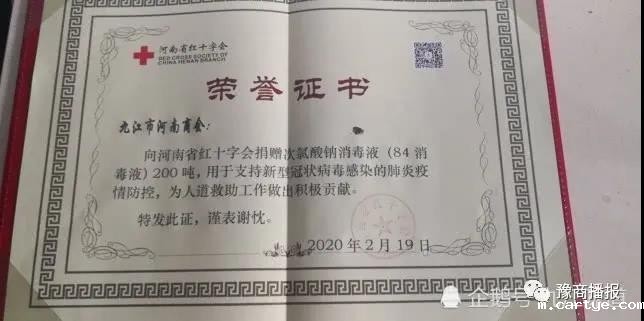 河南省红十字会
RED CROSS SOCIETY OF
CHINA HENAN BRANCH
荣誉证书
九江市河南商会：
向河南省红十字会捐赠次氯酸钠消毒液（84消
毒液）200吨，用于支持新型冠状病毒感染的肺炎疫
情防控，为人道救助工作做出积极贡献。
特发此证，谨表谢忱。
2020年2月19日
企鹅号
豫商播报
m.cartye.com